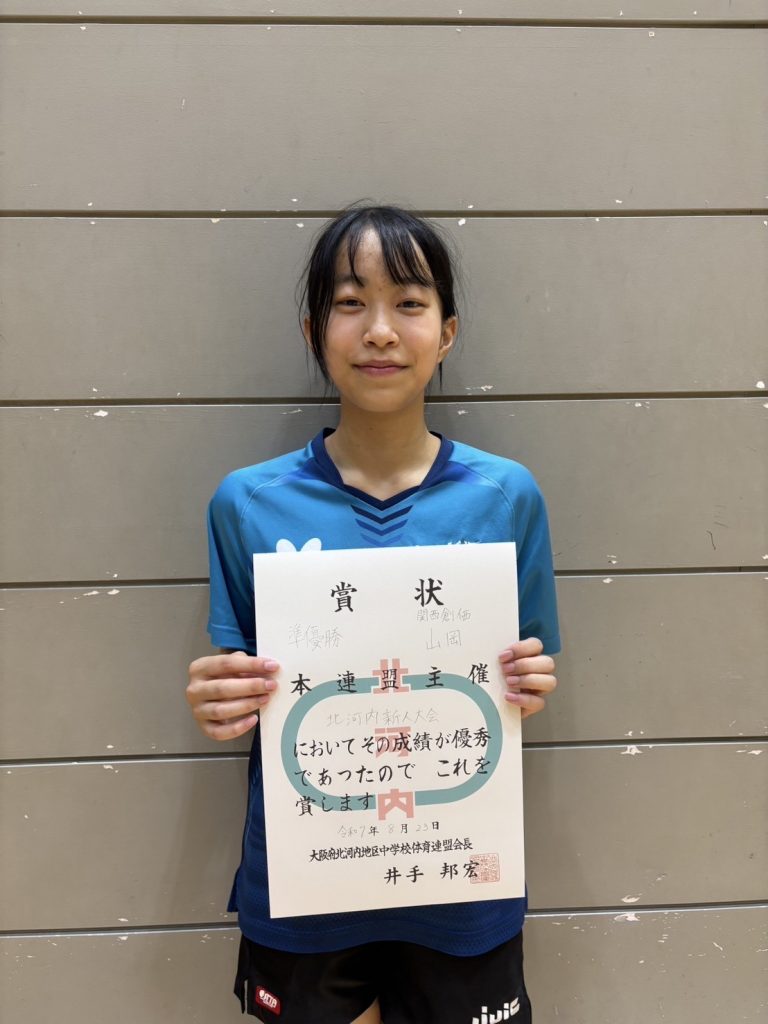 賞 状
関西創価
準優勝 山岡
本連盟主催
北河内新人大会
においてその成績が優秀
であつたので これを
賞します
令和7年8月23日
大阪府北河内地区中学校体育連盟会長
井手 邦宏
北
河
内
JTTA